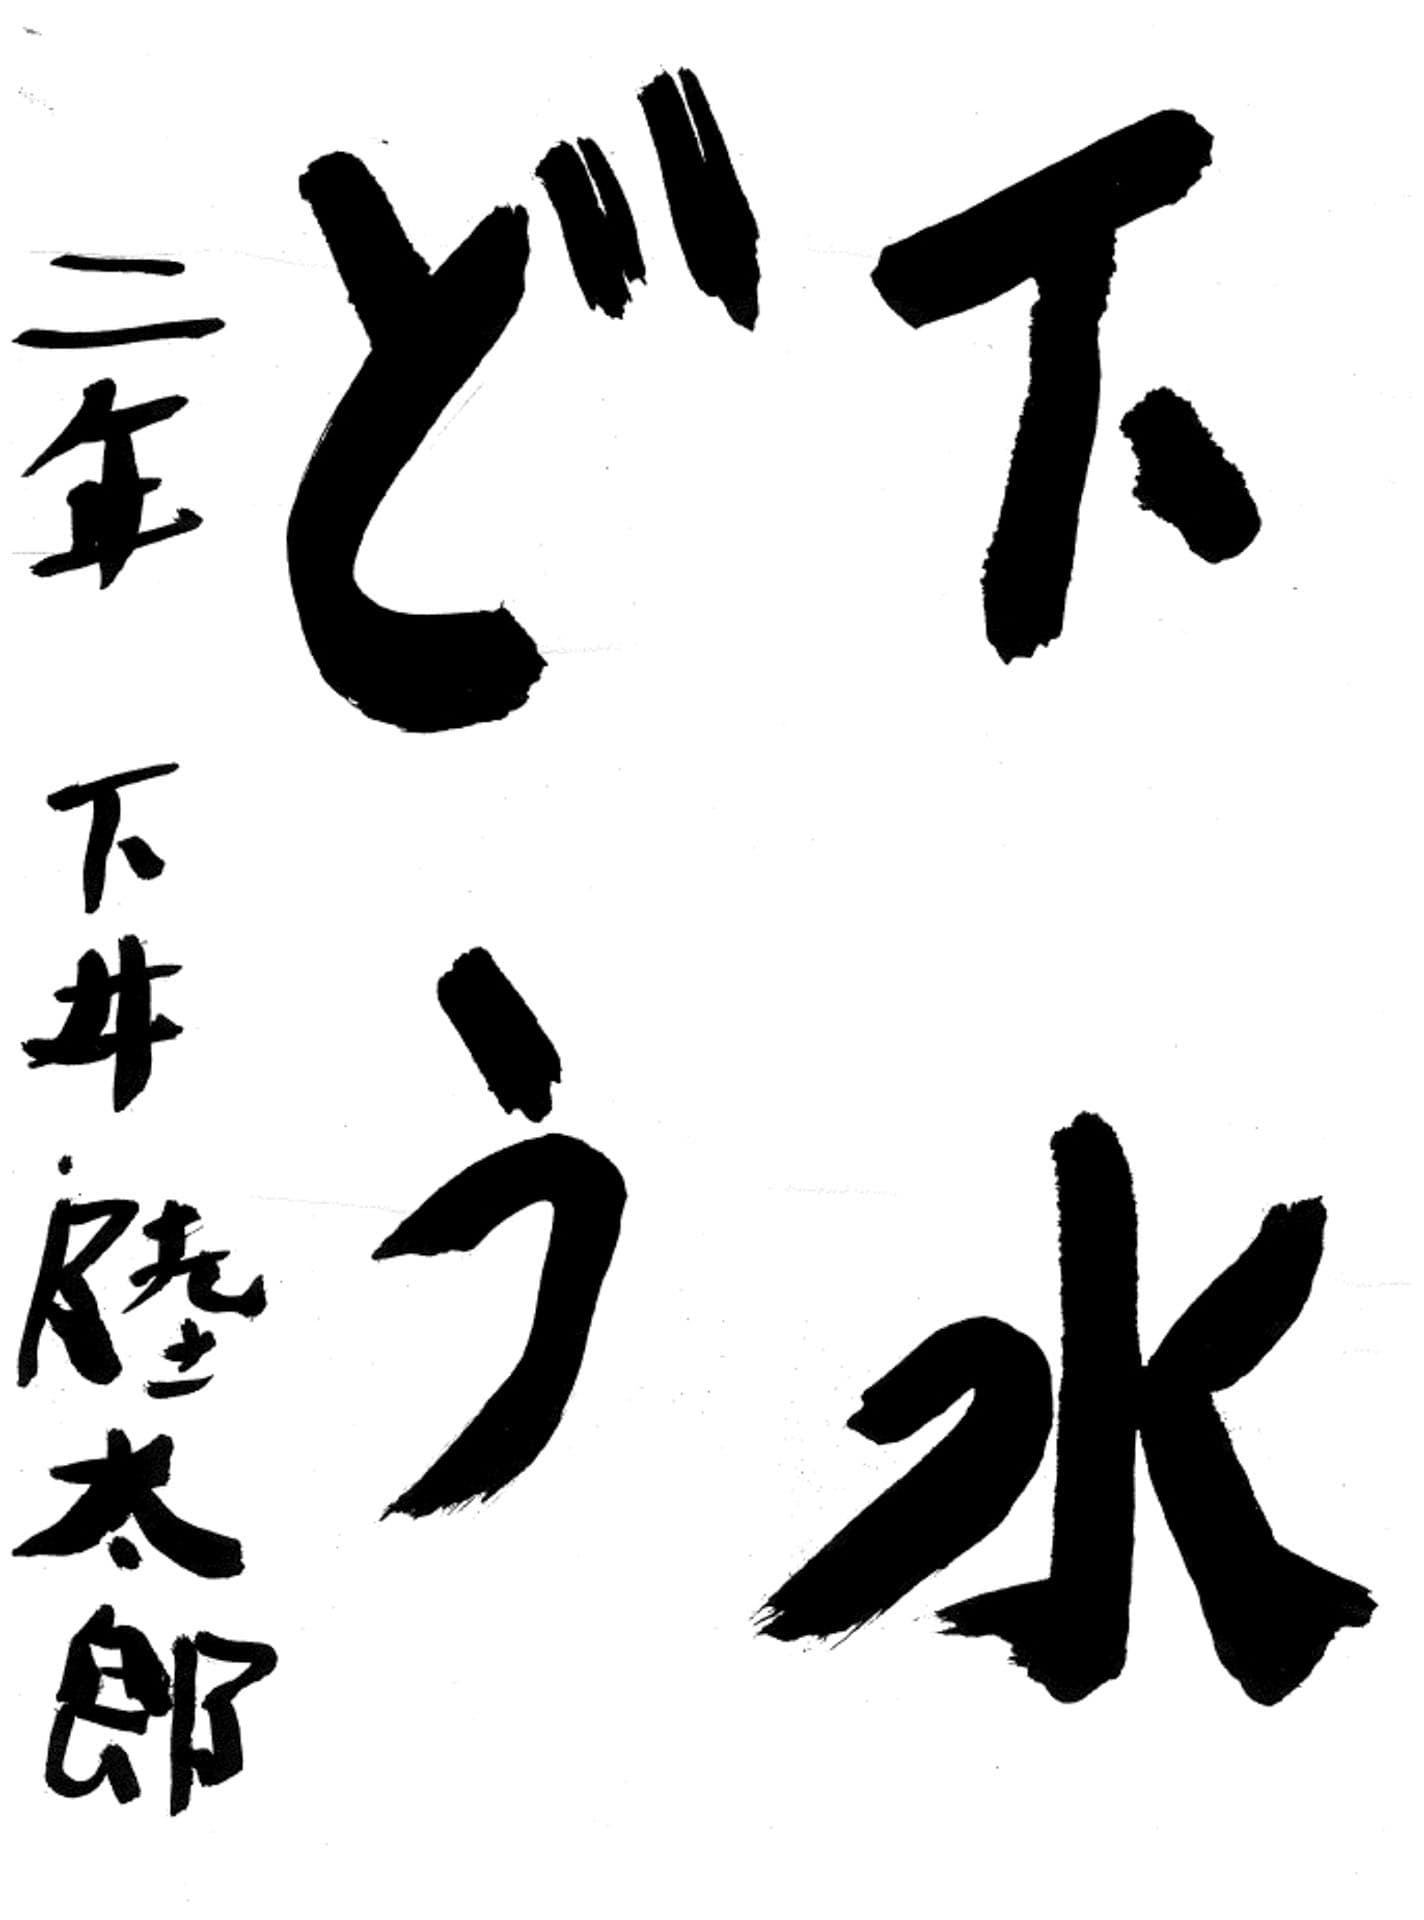 下水
どう
二年 下井陸太郎